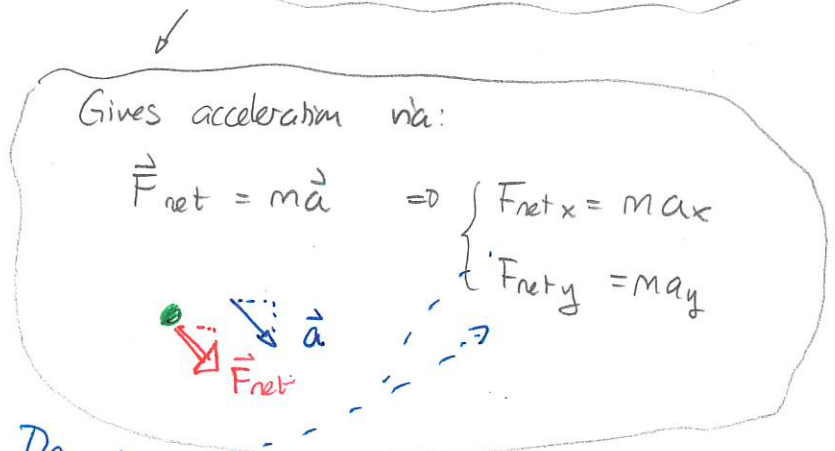 Gives acceleration via:
F⃗net = ma⃗ ⇒ { Fnet x = max
Fnet y = may
a⃗
F⃗net